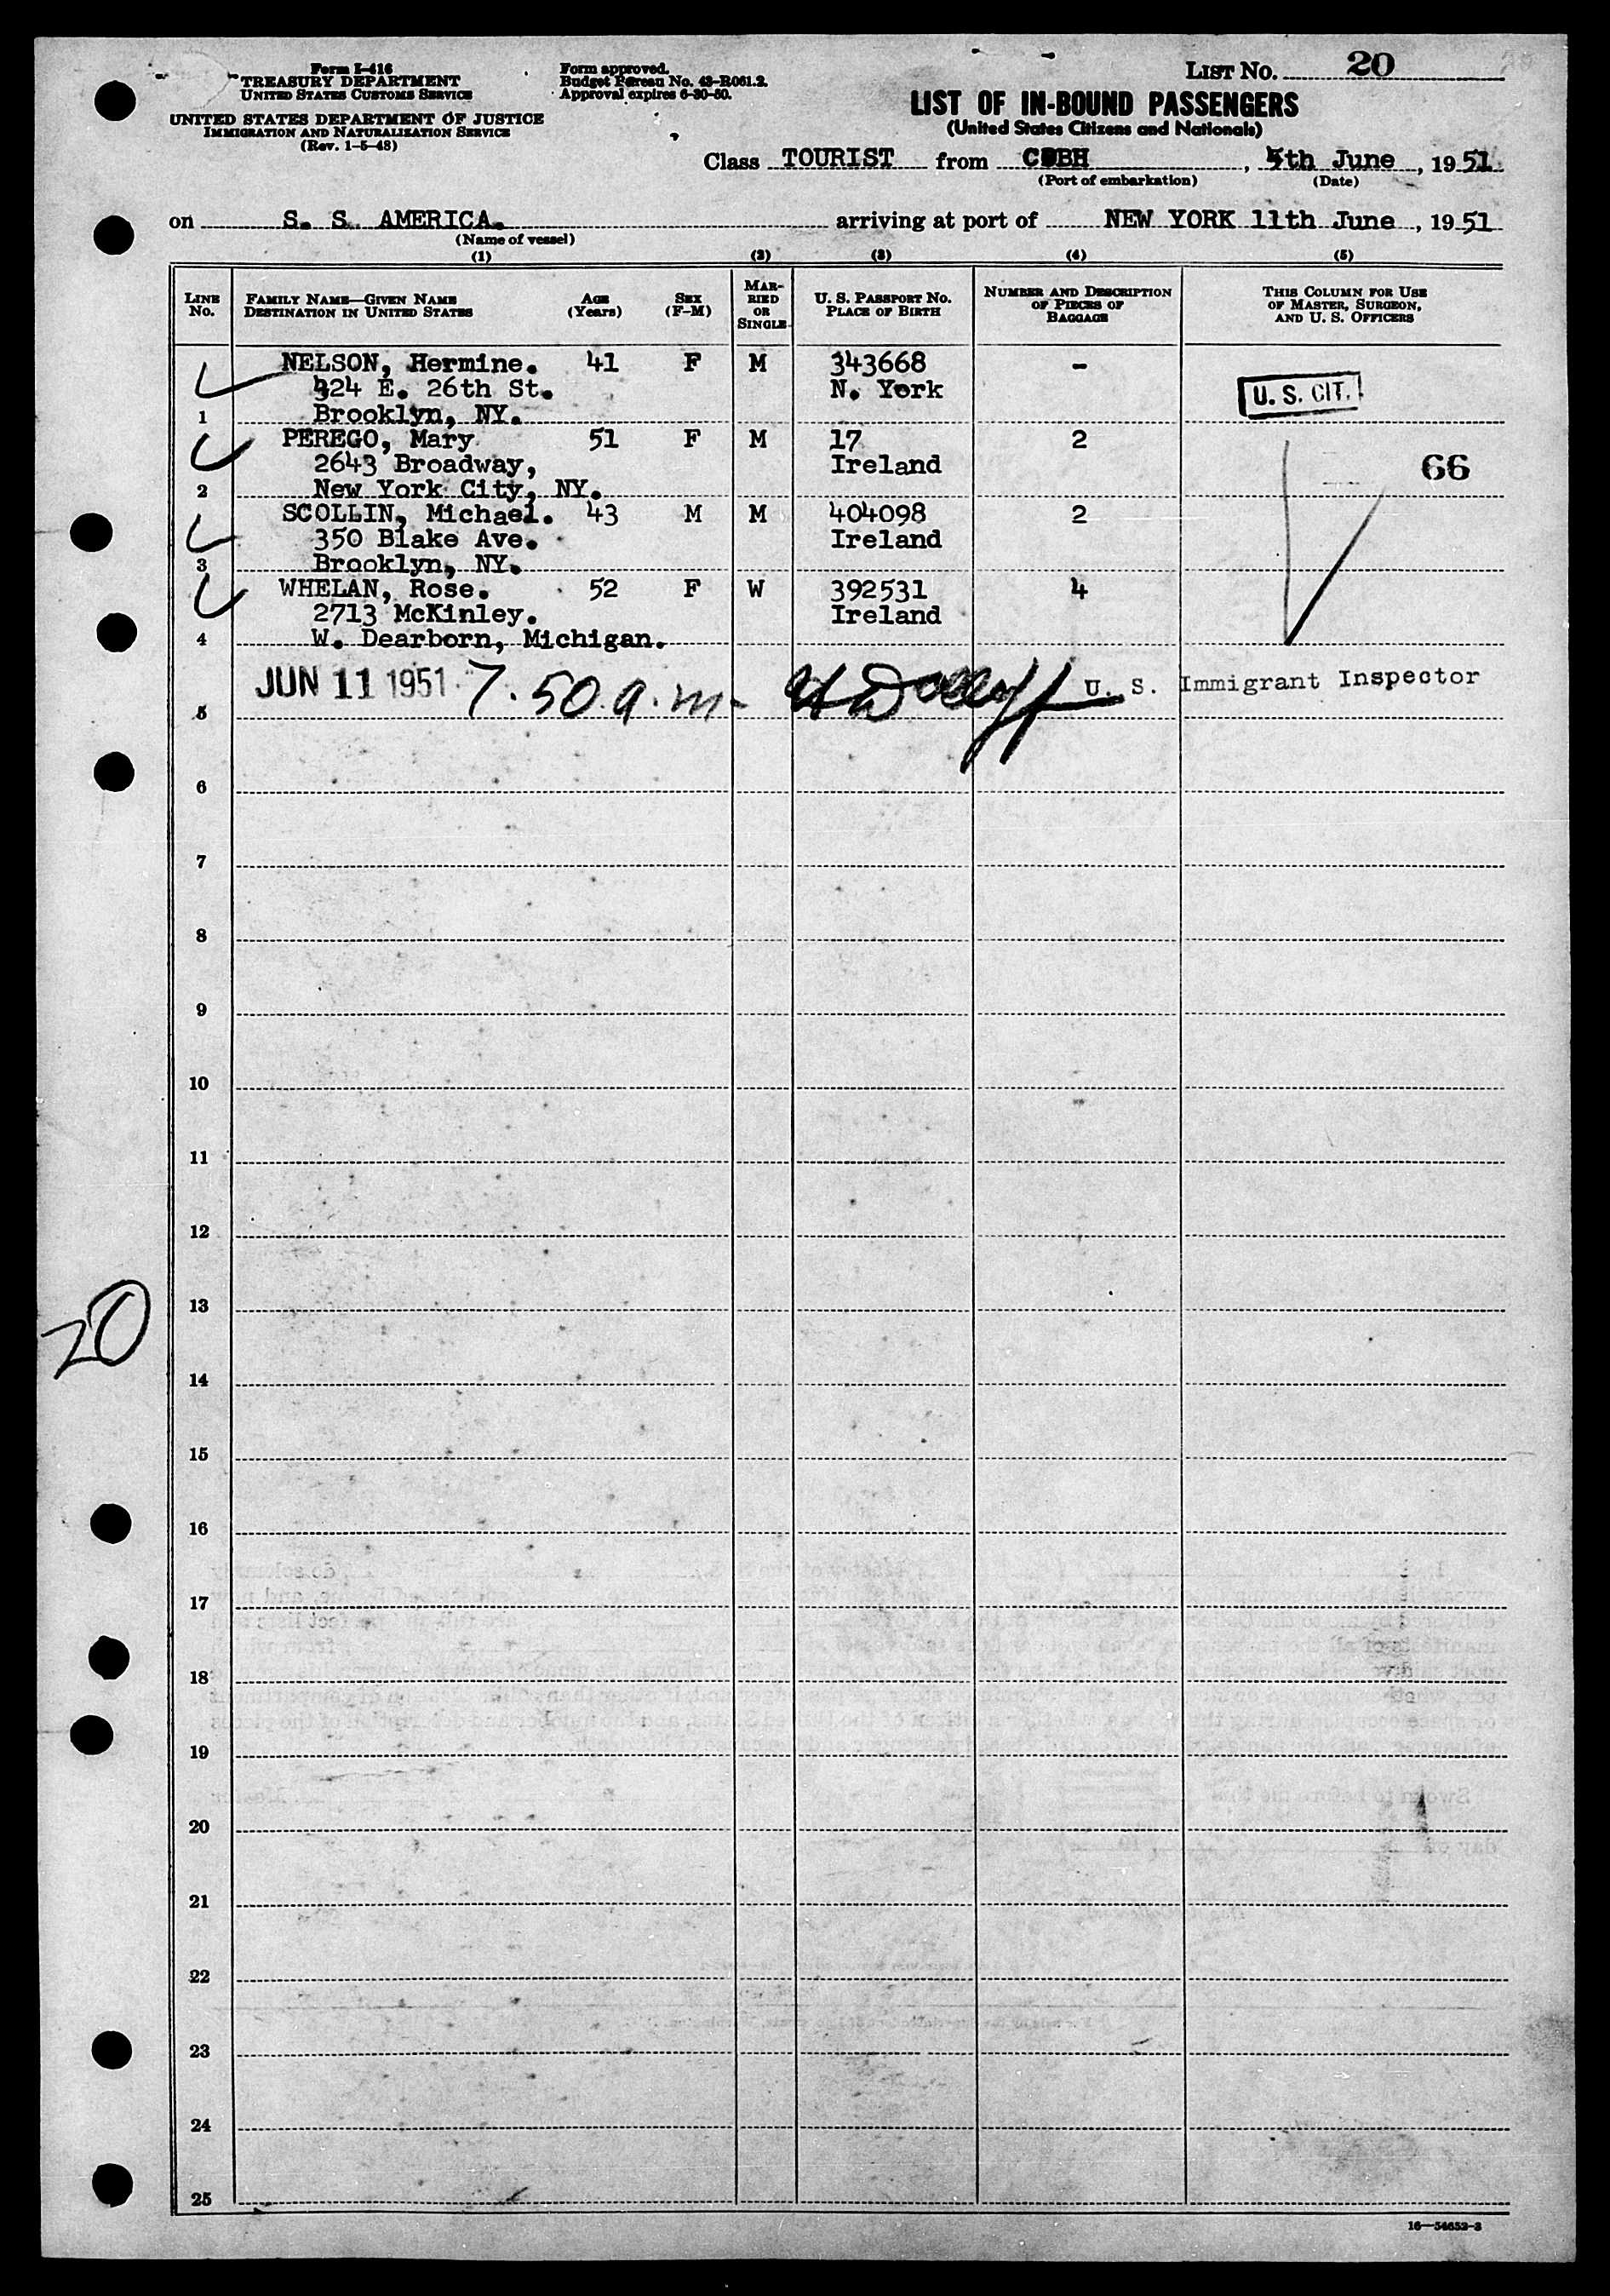 Form I-416
TREASURY DEPARTMENT
UNITED STATES CUSTOMS SERVICE
UNITED STATES DEPARTMENT OF JUSTICE
IMMIGRATION AND NATURALIZATION SERVICE
(Rev. 1-5-48)
Form approved.
Budget Bureau No. 43-R061.2.
Approval expires 6-30-50.
LIST No. 20
LIST OF IN-BOUND PASSENGERS
(United States Citizens and Nationals)
Class TOURIST from COBH, 5th June, 1951
(Port of embarkation) (Date)
on S. S. AMERICA. arriving at port of NEW YORK 11th June, 1951
(Name of vessel)
(1) (2) (3) (4) (5)
LINE No. FAMILY NAME—GIVEN NAME DESTINATION IN UNITED STATES AGE (Years) SEX (F-M) MARRIED OR SINGLE U. S. PASSPORT No. PLACE OF BIRTH NUMBER AND DESCRIPTION OF PIECES OF BAGGAGE THIS COLUMN FOR USE OF MASTER, SURGEON, AND U. S. OFFICERS
NELSON, Hermine. 41 F M 343668 -
424 E. 26th St. N. York U. S. CIT.
1 Brooklyn, NY.
PEREGO, Mary 51 F M 17 2
2643 Broadway, Ireland 66
2 New York City, NY.
SCOLLIN, Michael. 43 M M 404098 2
350 Blake Ave. Ireland
3 Brooklyn, NY.
WHELAN, Rose. 52 F W 392531 4
2713 McKinley. Ireland
4 W. Dearborn, Michigan.
JUN 11 1951 7.50 a.m. U. S. Immigrant Inspector
5
6
7
8
9
10
11
12
13
20
14
15
16
17
18
19
20
21
22
23
24
25
16—54652-3